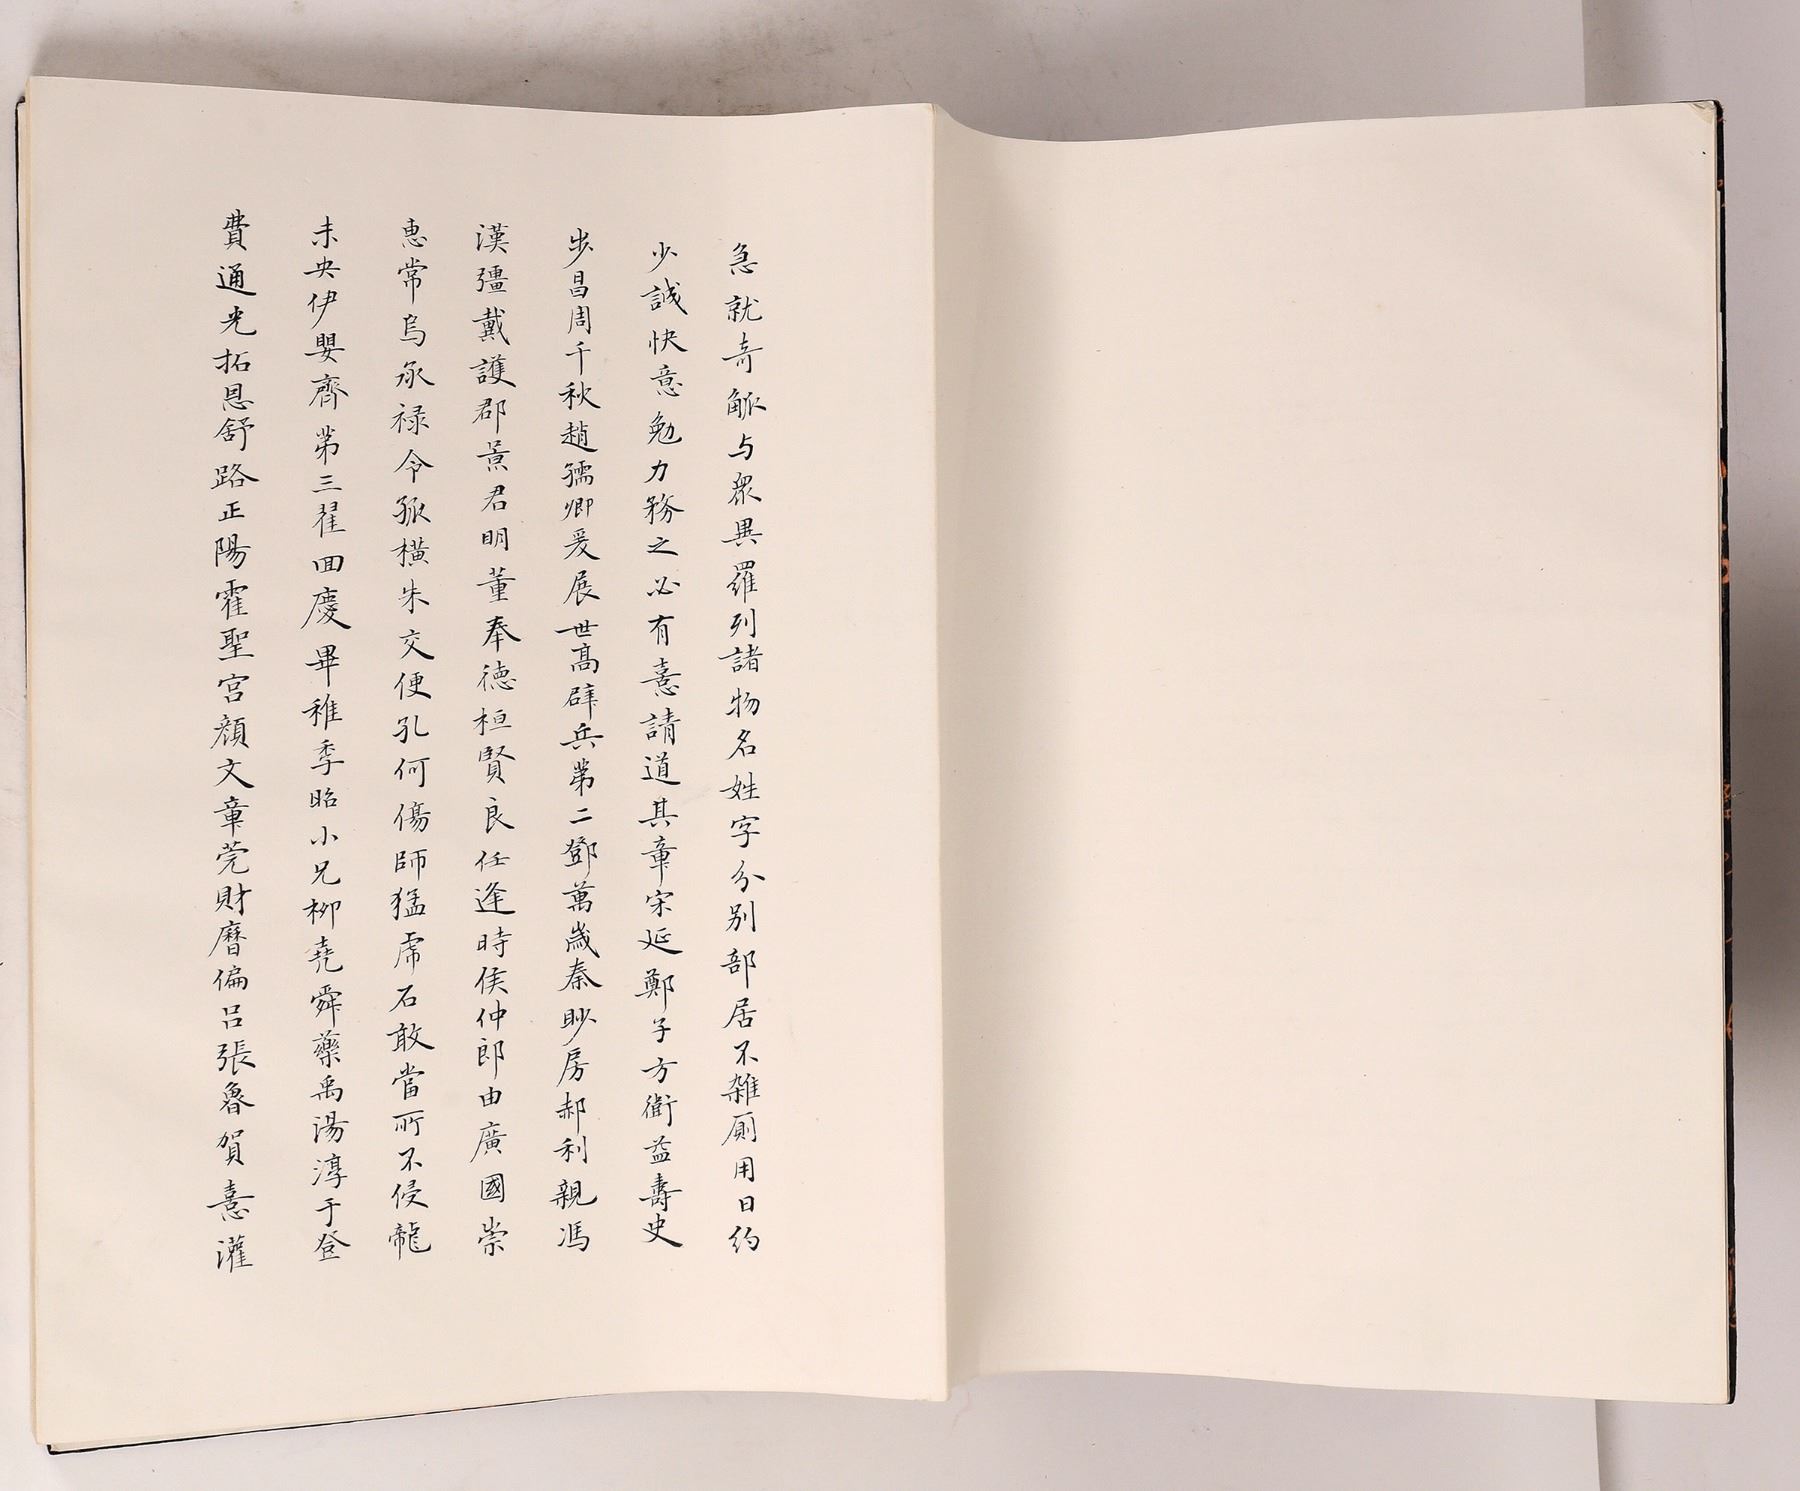 急就奇觚与眾異羅列諸物名姓字分別部居不雜廁用日約
少誠快意勉力務之必有憙請道其章宋延鄭子方衛益壽史
步昌周千秋趙孺卿爰展世高辟兵第二鄧萬歲秦眇房郝利親馮
漢彊戴護郡景君明董奉德桓賢良任逢時侯仲郎由廣國崇
惠常烏承祿令狐橫朱交便孔何傷師猛虎石敢當所不侵龍
未央伊嬰齊第三翟回慶畢稚季昭小兄柳堯舜藥禹湯淳于登
費通光拓恩舒路正陽霍聖宮顏文章莞財曆偏呂張魯賀憙灌